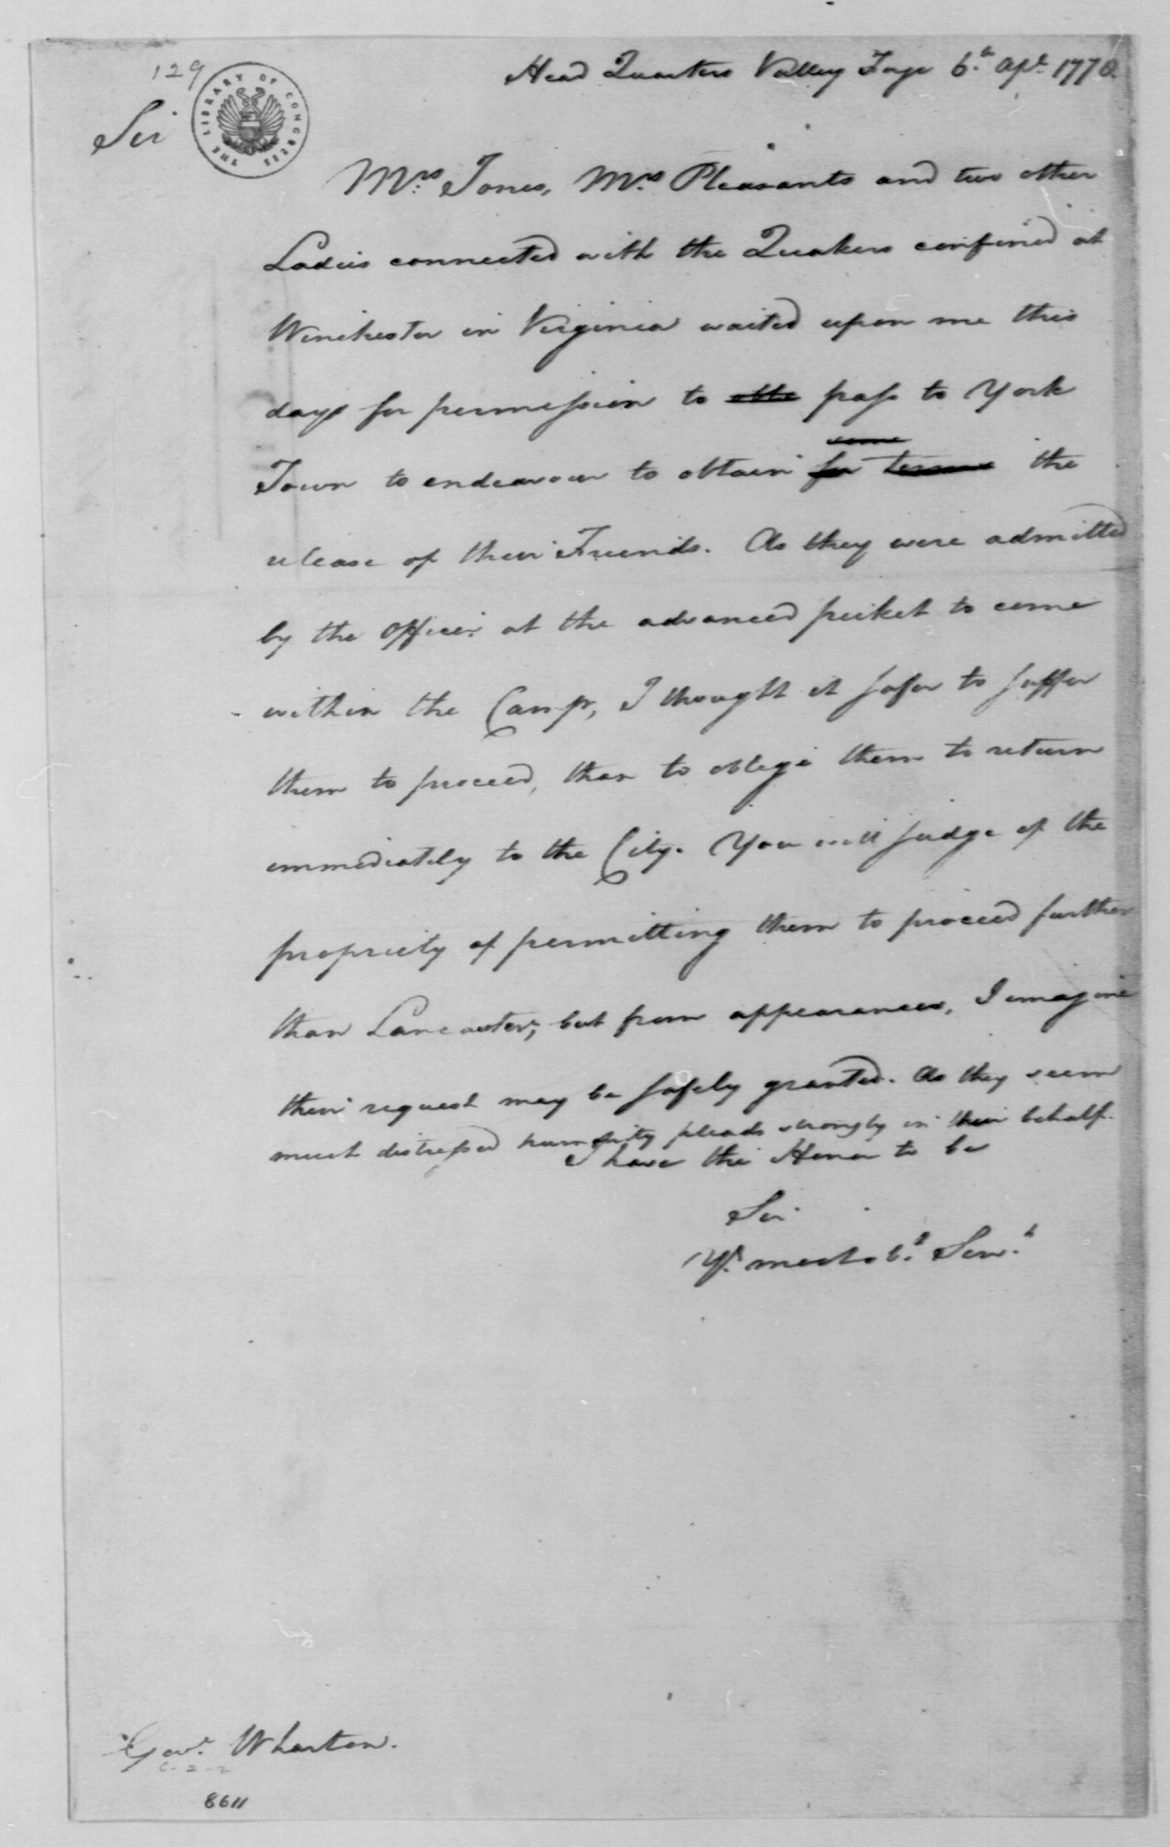 129
THE LIBRARY OF CONGRESS
Head Quarters Valley Forge 6.th Apl. 1778.
Sir
Mrs. Jones, Mrs. Pleasants and two other
Ladies connected with the Quakers confined at
Winchester in Virginia waited upon me this
day for permission to pass to York
some
Town to endeavour to obtain for the
release of their Friends. As they were admitted
by the Officer at the advanced picket to come
within the Camp, I thought it safer to suffer
them to proceed, than to oblige them to return
immediately to the City. You will judge of the
propriety of permitting them to proceed further
than Lancaster, but from appearances, I imagine
their request may be safely granted. As they seem
much distressed humanity pleads strongly in their behalf.
I have the Honor to be
Sir
Yr. most obt. Servt.
Govr. Wharton.
C-2-2
8611